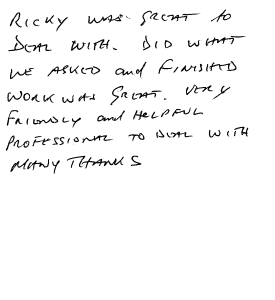 RICKY WAS GREAT to
DEAL WITH. DID WHAT
WE ASKED and FINISHED
WORK WAS GREAT. VERY
FRIENDLY and HELPFUL
PROFESSIONAL TO DEAL WITH
MANY THANKS